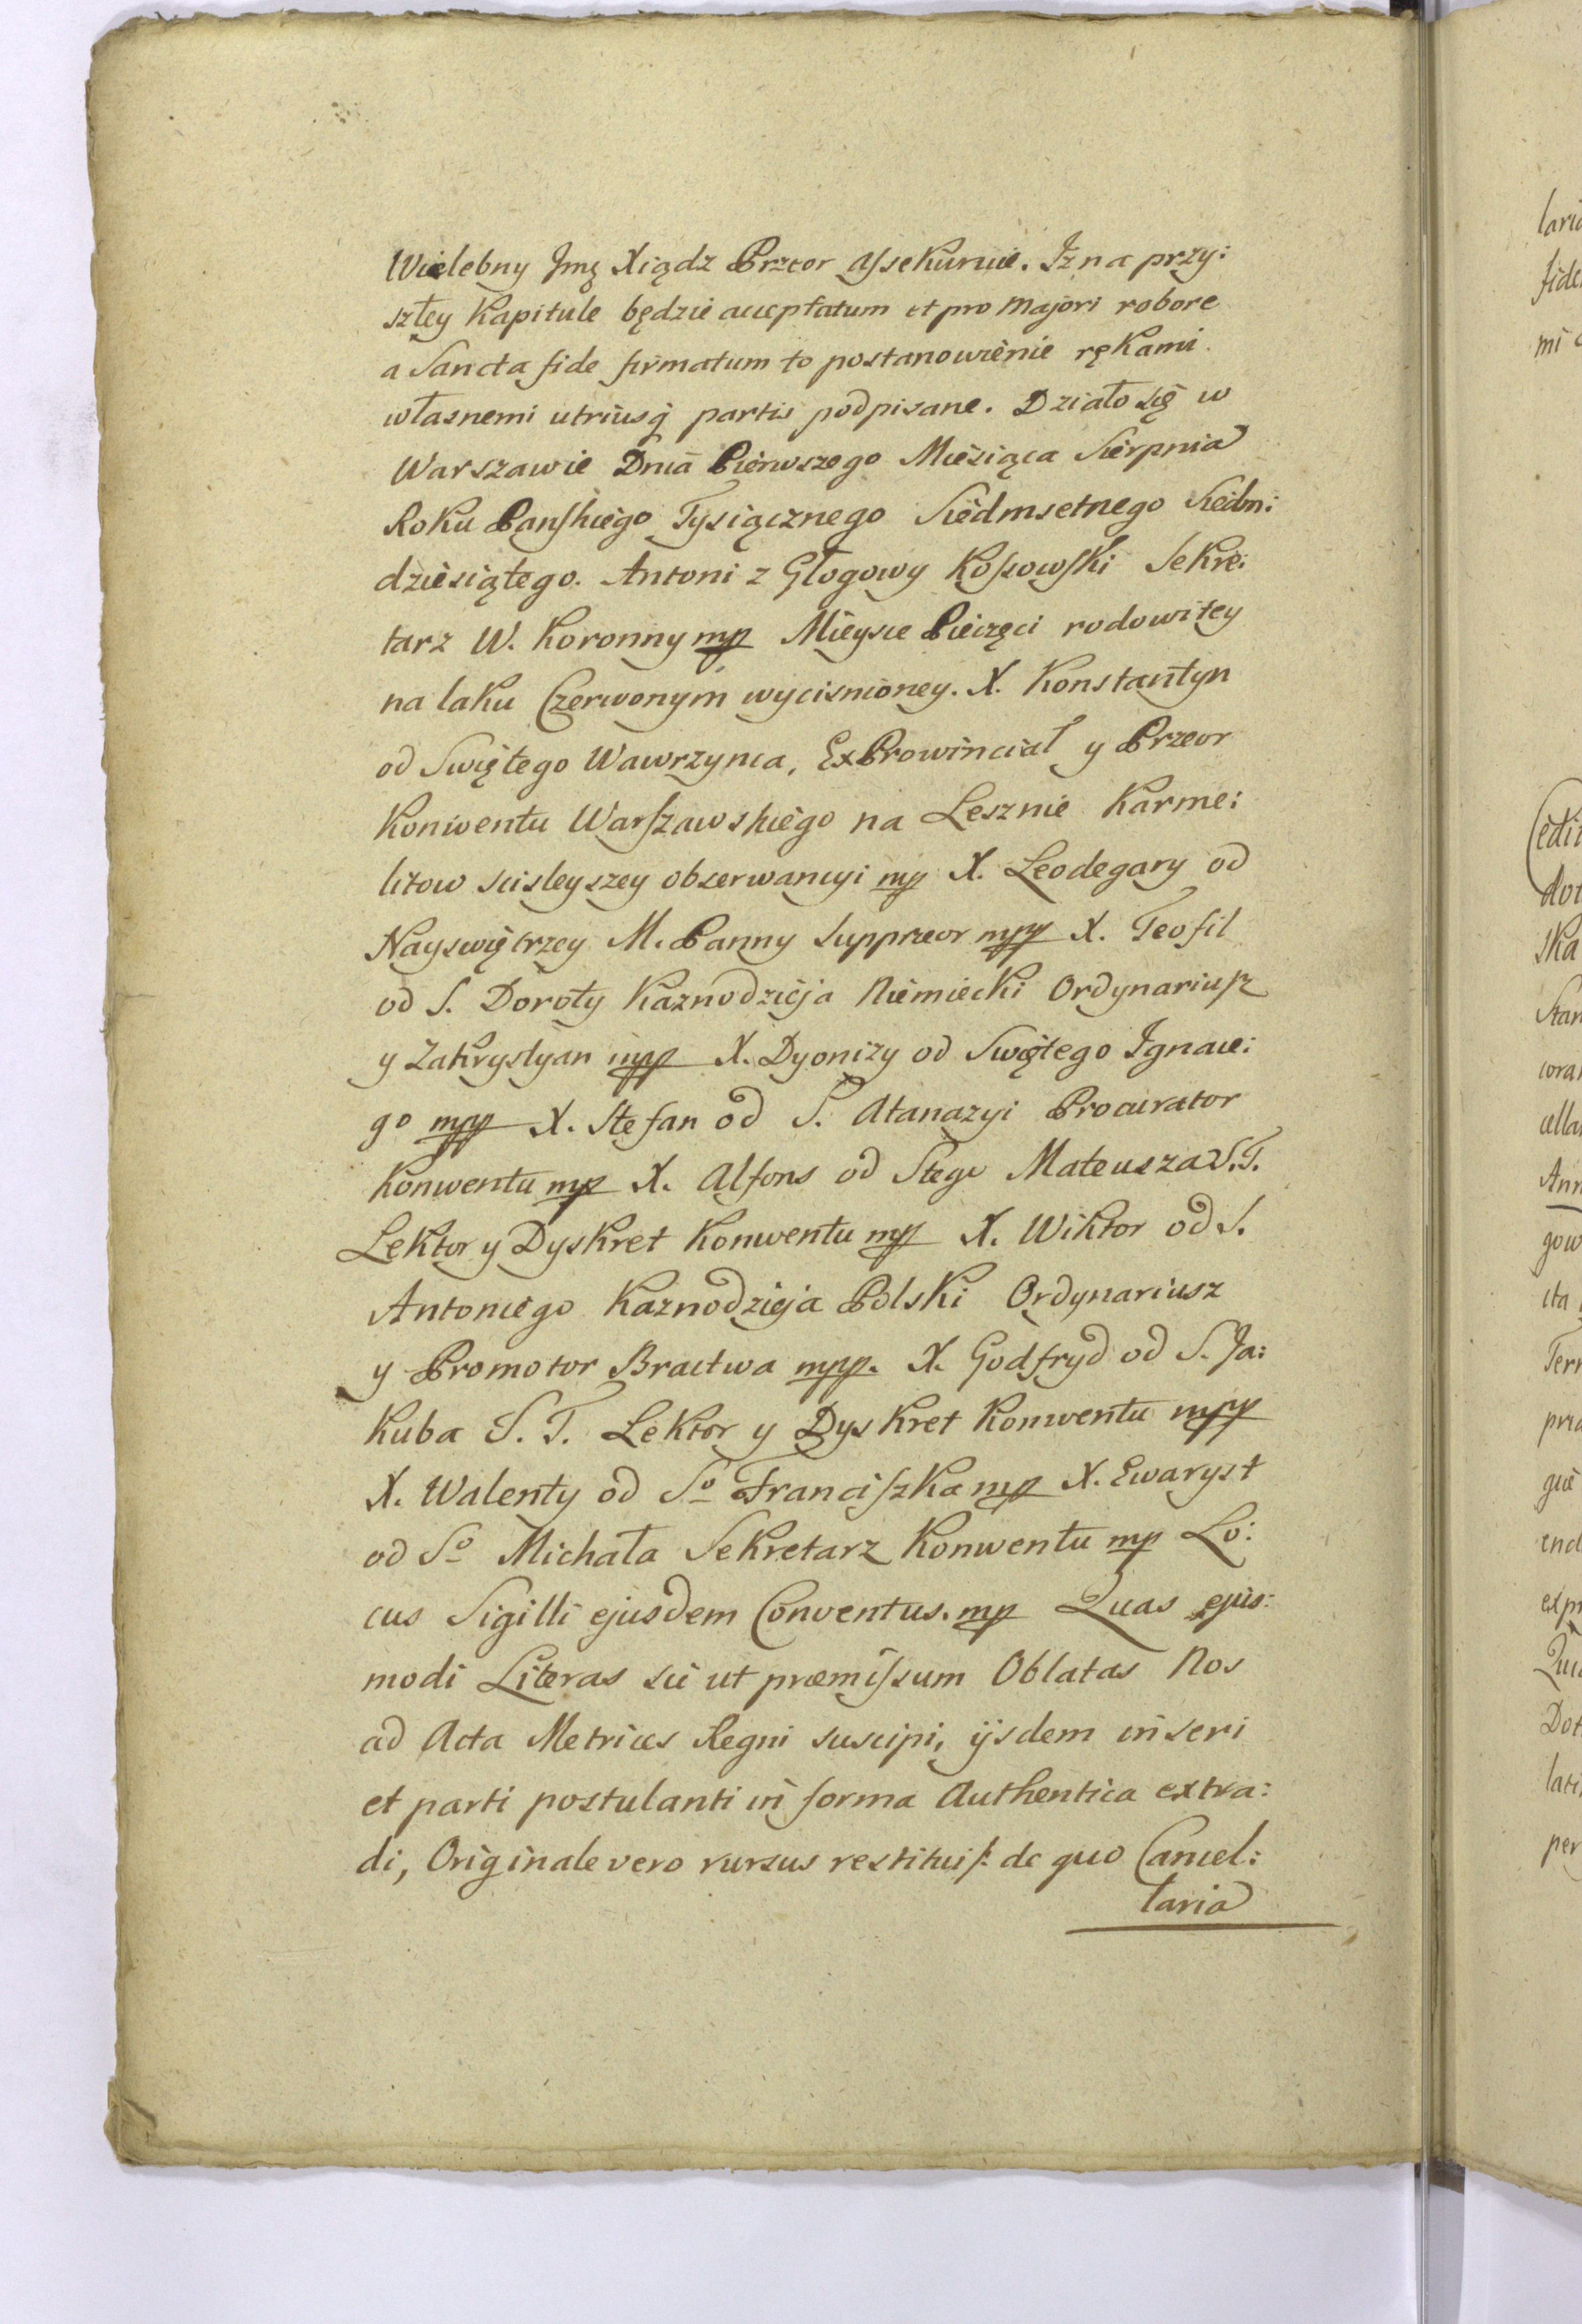 Wielebny Jmę Xiądz Przeor assekuruie. Iż na przy:
szłey Kapitule będzie acceptatum et pro majori robore
a Sancta fide firmatum to postanowienie rękami
własnemi utriusq partis podpisane. Działo się w
Warszawie Dnia Pierwszego Miesiąca Sierpnia
Roku Pańskiego Tysiącznego Siedmsetnego Siedm:
dziesiątego. Antoni z Głogowy Kossowski Sekre:
tarz W. Koronny mp Mieysce Pieczęci rodowitey
na laku Czerwonym wycisnioney. X. Konstantyn
od Swiętego Wawrzynca, ExProwinciał y Przeor
Konwentu Warszawskiego na Lesznie Karme:
litow scisleyszey obserwancyi mp X. Leodegary od
Nayswiętrzey M. Panny Suppreor mpp X. Teofil
od S. Doroty Kaznodzieja Niemiecki Ordynariusz
y Zakrystyan mpp X. Dyonizy od Swiętego Ignace:
go mpp X. Stefan od S. Atanazyi Procurator
Konwentu mp X. Alfons od Stego Mateusza S. T.
Lektor y Dyskret Konwentu mp X. Wiktor od S.
Antoniego Kaznodzieja Polski Ordynariusz
y Promotor Bractwa mpp. X. Godfryd od S. Ja:
kuba S. T. Lektor y Dyskret Konwentu mpp
X. Walenty od So Franciszka mp X. Ewaryst
od So Michała Sekretarz Konwentu mp Lo:
cus Sigilli ejusdem Conventus. mp Quas ejus:
modi Literas sic ut præmissum Oblatas Nos
ad Acta Metrices Regni suscipi, ijsdem inseri
et parti postulanti in forma Authentica extra:
di, Originale vero rursus restitui s: de quo Cancel:
laria